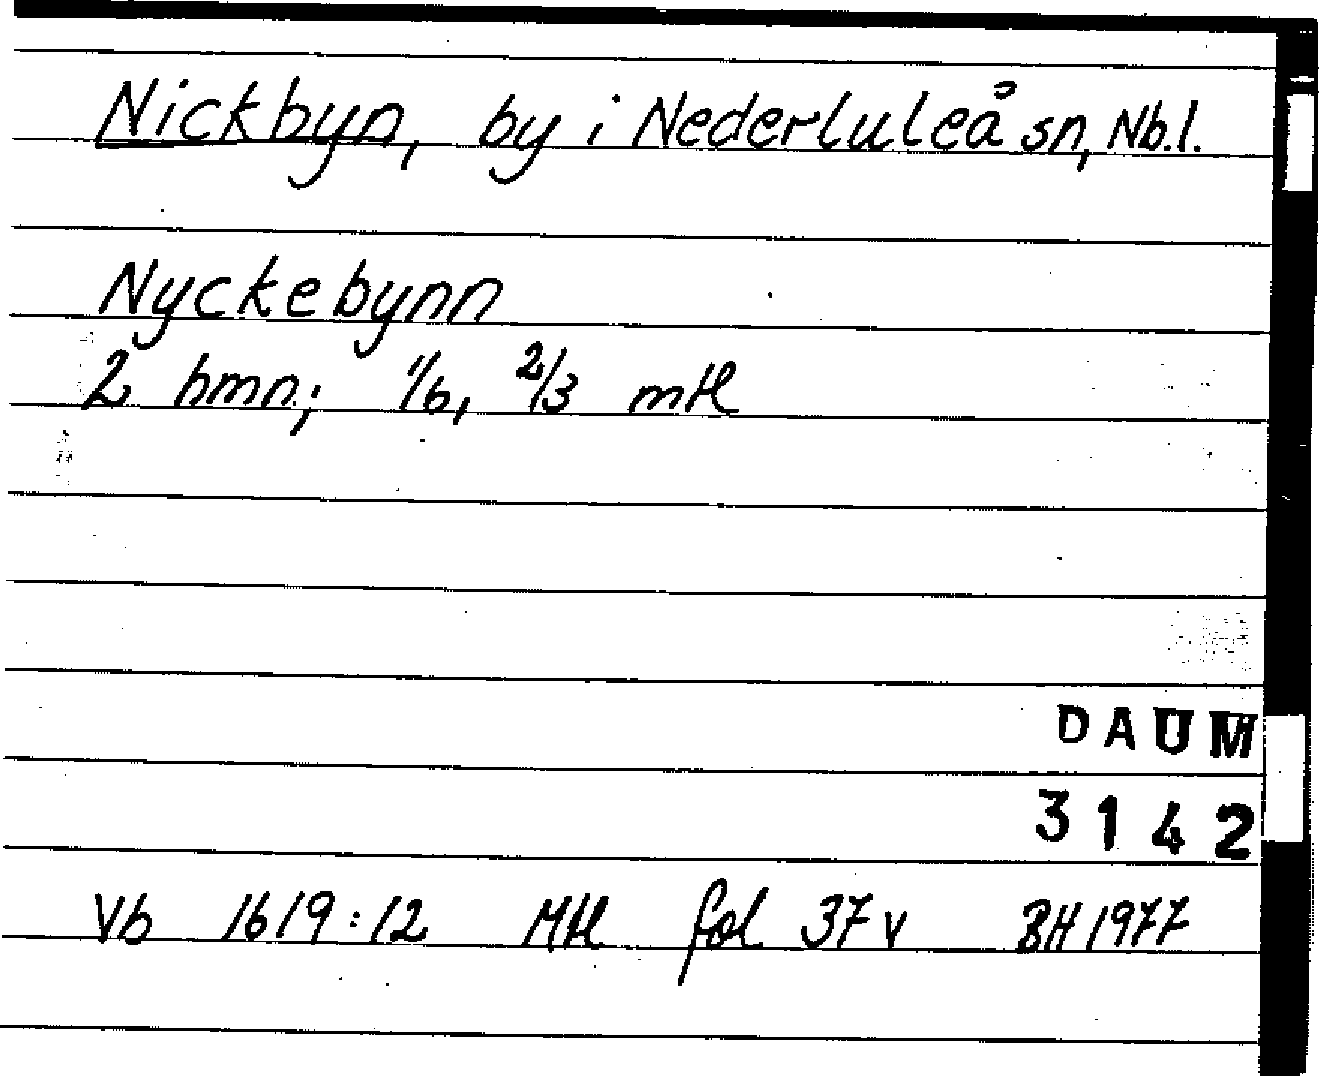 Nickbyn, by i Nederluleå sn, Nb.l.
Nyckebynn
2 bmn; 1/6, 2/3 mtl
DAUM
3142
Vb 1619:12 Mtl fol 37 v BH 1977